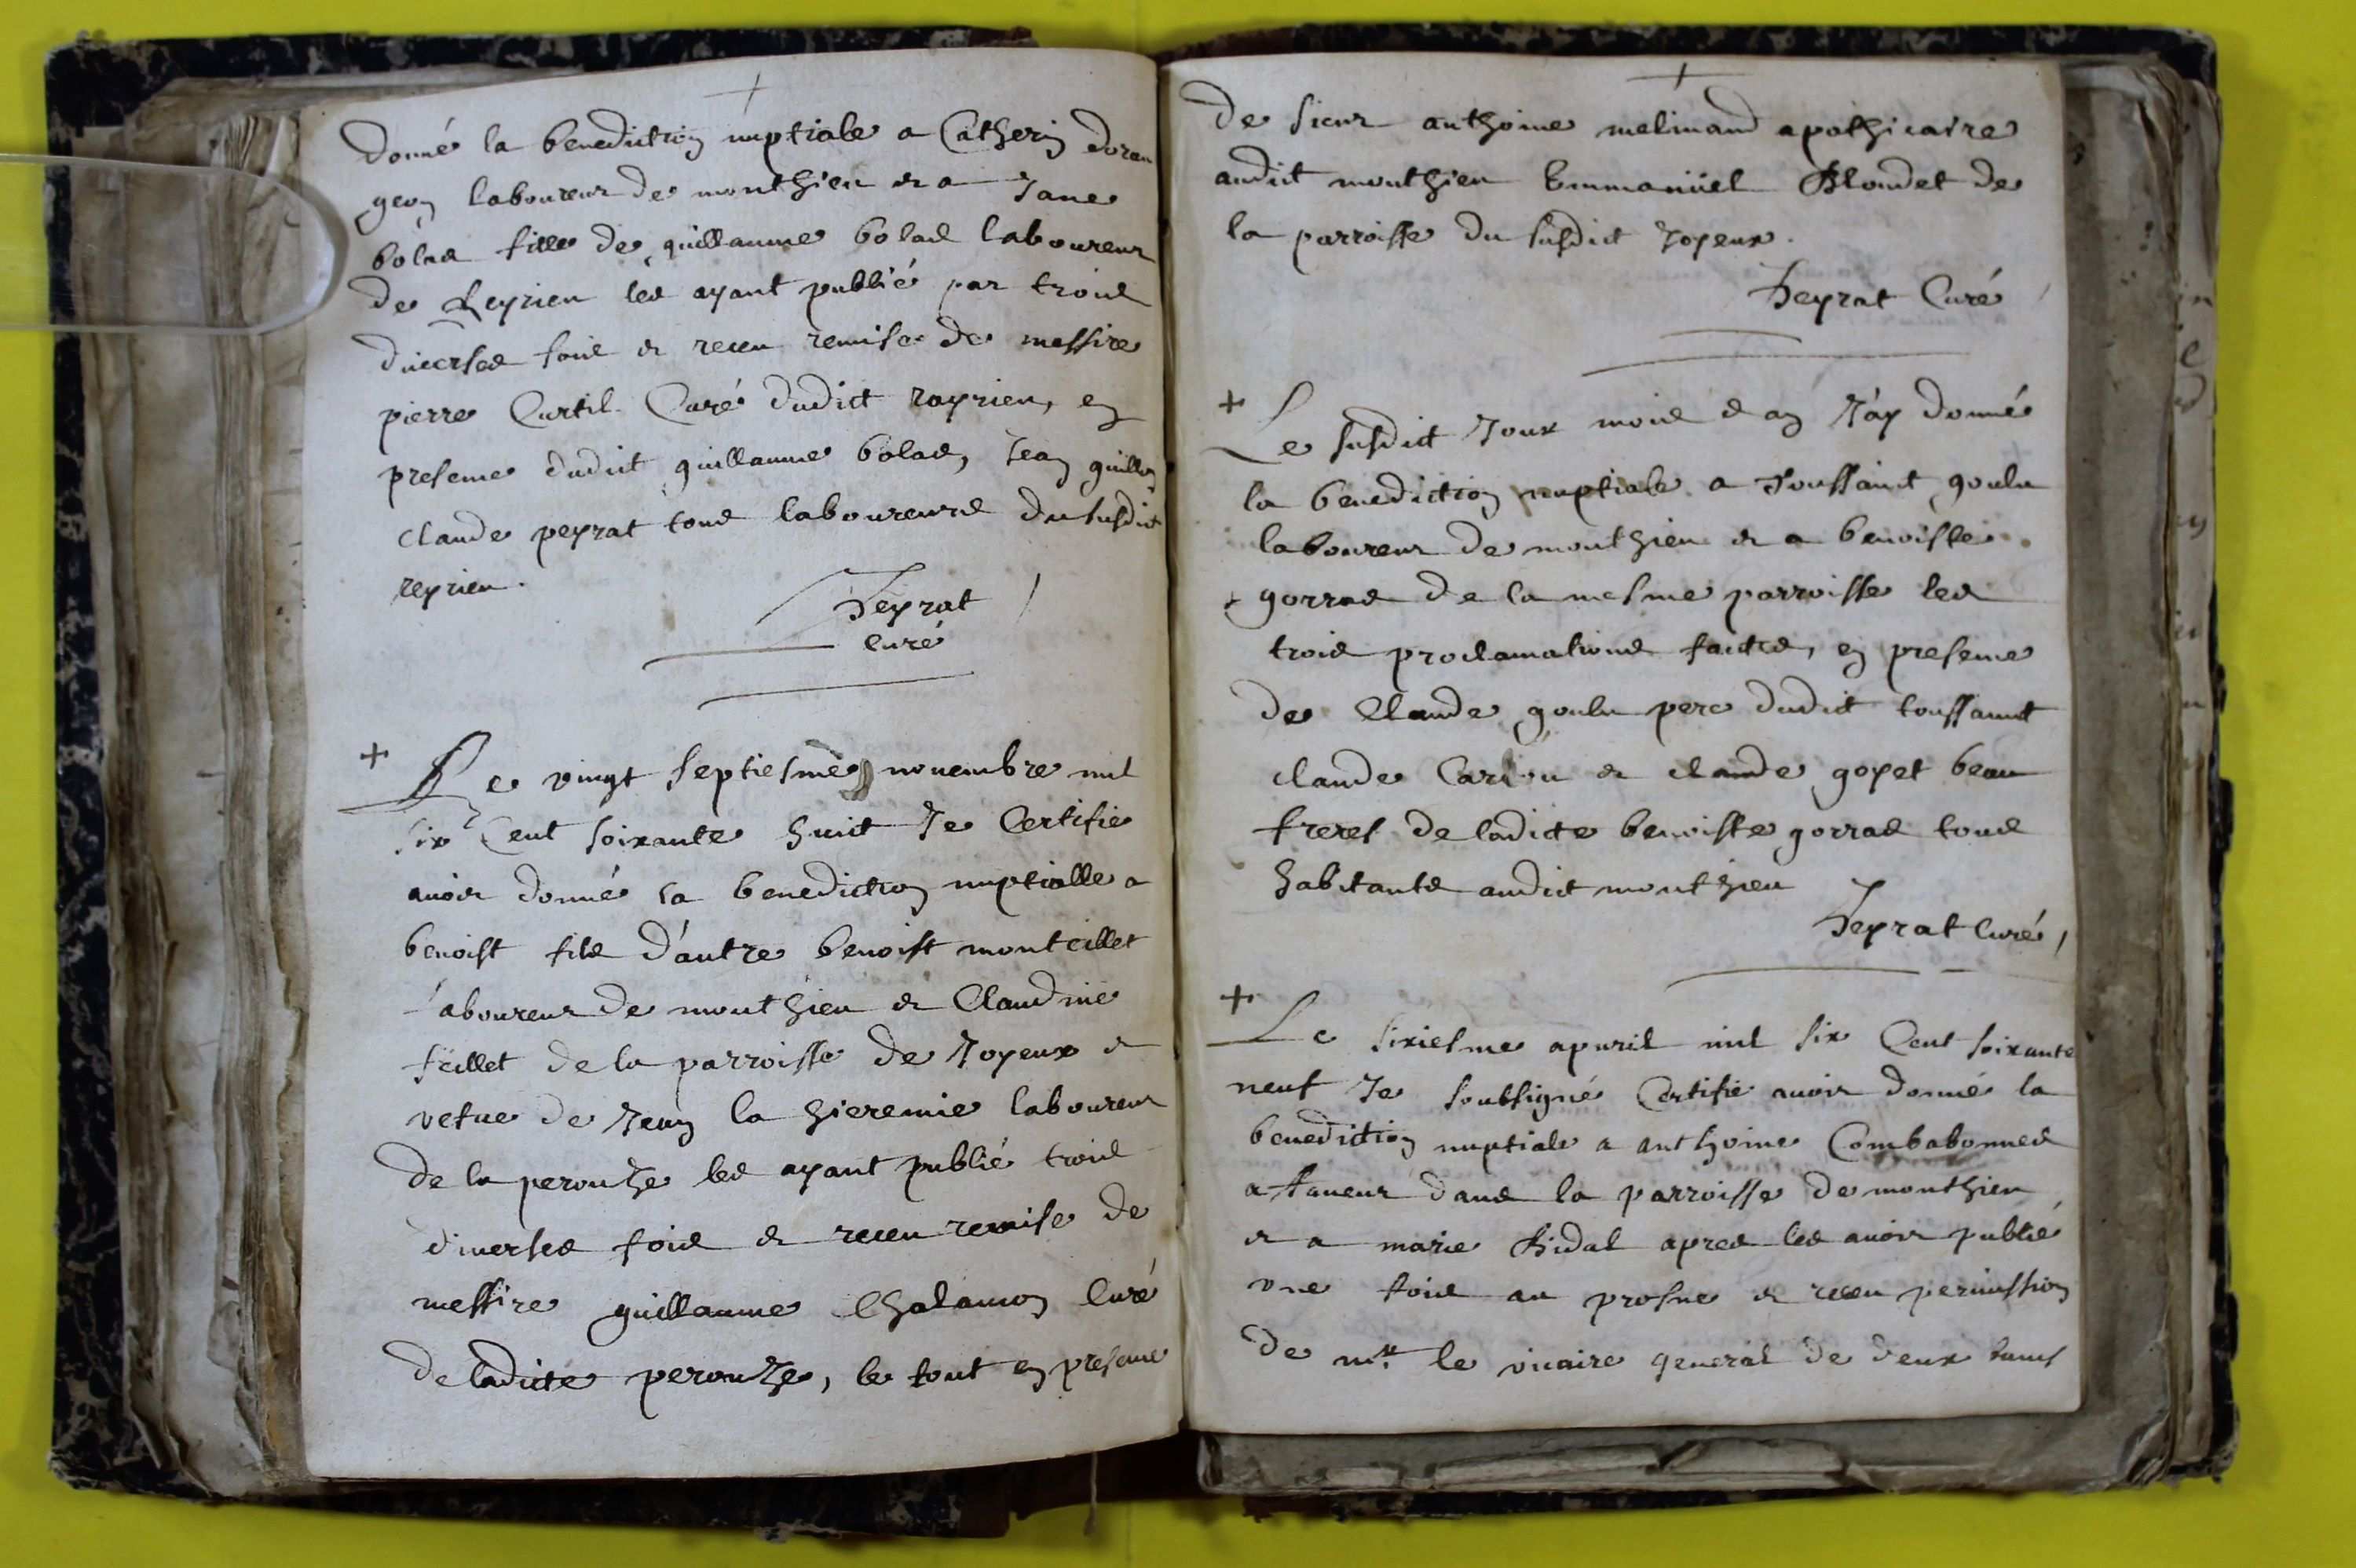 donné la benediction nuptiale a Catherin doran
geon laboureur de monthieu et a Jane
bolas fille de guillaume bolas laboureur
de Reyrieu les ayant publié par trois
diverses fois et receu remise de messire
pierre Curtil Curé dudict rayrieu, en
presence dudict guillaume bolas, Jean guillon
claude peyrat tous laboureurs du susdict
reyrieu.
Peyrat
Curé
Le vingt septiesme novembre mil
six Cent soixante huict Je Certifie
avoir donné la benediction nuptialle a
benoist fils d'autre benoist monteillet
laboureur de monthieu et Claudine
feillet de la parroisse de Joyeux et
vefue de Jean la hieremie laboureur
de la perouze les ayant publié trois
diverses fois et receu remise de
messire guillaume Chalamon Curé
de ladicte perouze, le tout en presence
de sieur anthoine melinand apothicaire
audict monthieu Emmanüel Blondet de
la parroisse du susdict Joyeux.
Peyrat Curé
Le susdict Jour mois et an J'ay donné
la benediction nuptiale a Toussainct goulu
laboureur de monthieu et a benoiste
gorras de la mesme parroisse les
trois proclamations faictes, en presence
de Claude goulu pere dudict toussainct
claude et claude goyet beau
freres de ladicte benoiste gorras tous
habitants audict monthieu
Peyrat Curé
Le sixiesme apuril mil six Cent soixante
neuf Je soubsigné Certifie avoir donné la
benediction nuptiale a anthoine Combabonnes
a taneur dans la parroisse de monthieu
et a marie Bidal apres les avoir publié
vne fois au prosne et receu permission
de mr le vicaire general de deux bans